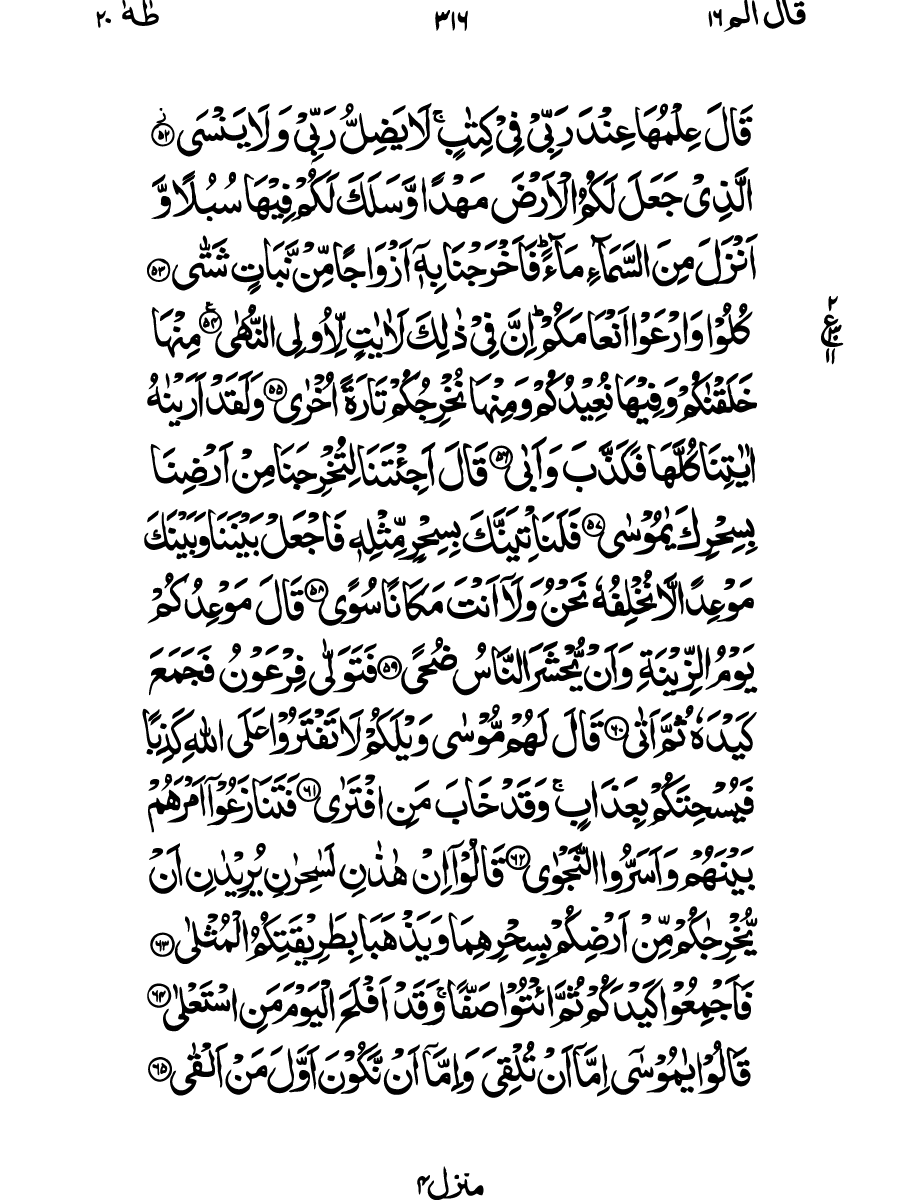 قال الم ١٦ ٣١٦ طٰهٰ ٢٠
قَالَ عِلْمُهَا عِنْدَ رَبِّیْ فِیْ كِتٰبٍ ۚ لَا یَضِلُّ رَبِّیْ وَ لَا یَنْسَی ۟ۙ ﴿۵۲﴾
الَّذِیْ جَعَلَ لَكُمُ الْاَرْضَ مَهْدًا وَّ سَلَكَ لَكُمْ فِیْهَا سُبُلًا وَّ
اَنْزَلَ مِنَ السَّمَآءِ مَآءً ؕ فَاَخْرَجْنَا بِهٖۤ اَزْوَاجًا مِّنْ نَّبَاتٍ شَتّٰی ﴿۵۳﴾
كُلُوْا وَ ارْعَوْا اَنْعَامَكُمْ ؕ اِنَّ فِیْ ذٰلِكَ لَاٰیٰتٍ لِّاُولِی النُّهٰی ﴿۵۴﴾ مِنْهَا
خَلَقْنٰكُمْ وَ فِیْهَا نُعِیْدُكُمْ وَ مِنْهَا نُخْرِجُكُمْ تَارَةً اُخْرٰی ﴿۵۵﴾ وَ لَقَدْ اَرَیْنٰهُ
اٰیٰتِنَا كُلَّهَا فَكَذَّبَ وَ اَبٰی ﴿۵۶﴾ قَالَ اَجِئْتَنَا لِتُخْرِجَنَا مِنْ اَرْضِنَا
بِسِحْرِكَ یٰمُوْسٰی ﴿۵۷﴾ فَلَنَاْتِیَنَّكَ بِسِحْرٍ مِّثْلِهٖ فَاجْعَلْ بَیْنَنَا وَ بَیْنَكَ
مَوْعِدًا لَّا نُخْلِفُهٗ نَحْنُ وَ لَاۤ اَنْتَ مَكَانًا سُوًی ﴿۵۸﴾ قَالَ مَوْعِدُكُمْ
یَوْمُ الزِّیْنَةِ وَ اَنْ یُّحْشَرَ النَّاسُ ضُحًی ﴿۵۹﴾ فَتَوَلّٰی فِرْعَوْنُ فَجَمَعَ
كَیْدَهٗ ثُمَّ اَتٰی ﴿۶۰﴾ قَالَ لَهُمْ مُّوْسٰی وَیْلَكُمْ لَا تَفْتَرُوْا عَلَی اللّٰهِ كَذِبًا
فَیُسْحِتَكُمْ بِعَذَابٍ ۚ وَ قَدْ خَابَ مَنِ افْتَرٰی ﴿۶۱﴾ فَتَنَازَعُوْۤا اَمْرَهُمْ
بَیْنَهُمْ وَ اَسَرُّوا النَّجْوٰی ﴿۶۲﴾ قَالُوْۤا اِنْ هٰذٰنِ لَسٰحِرٰنِ یُرِیْدٰنِ اَنْ
یُّخْرِجٰكُمْ مِّنْ اَرْضِكُمْ بِسِحْرِهِمَا وَ یَذْهَبَا بِطَرِیْقَتِكُمُ الْمُثْلٰی ﴿۶۳﴾
فَاَجْمِعُوْا كَیْدَكُمْ ثُمَّ ائْتُوْا صَفًّا ۚ وَ قَدْ اَفْلَحَ الْیَوْمَ مَنِ اسْتَعْلٰی ﴿۶۴﴾
قَالُوْا یٰمُوْسٰۤی اِمَّاۤ اَنْ تُلْقِیَ وَ اِمَّاۤ اَنْ نَّكُوْنَ اَوَّلَ مَنْ اَلْقٰی ﴿۶۵﴾
منزل ۴